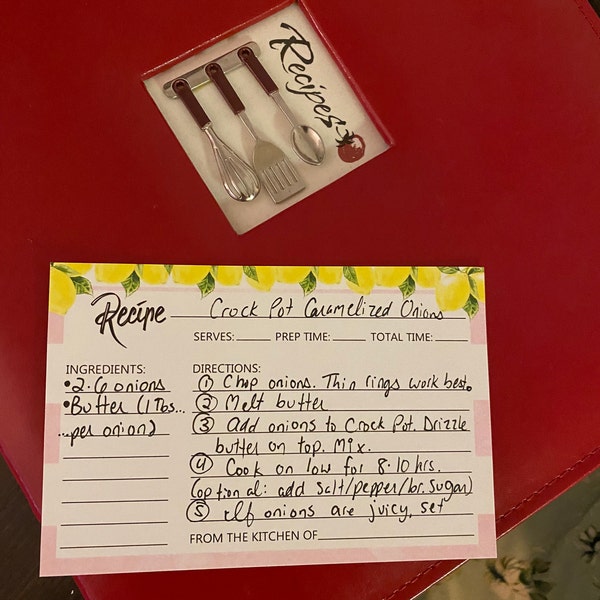 Recipes
Recipe Crock Pot Caramelized Onions
SERVES: PREP TIME: TOTAL TIME:
INGREDIENTS:
• 2-6 onions
• Butter (1 Tbs...
...per onion)
DIRECTIONS:
① Chop onions. Thin rings work best.
② Melt butter
③ Add onions to Crock Pot. Drizzle
butter on top. Mix.
④ Cook on low for 8-10 hrs.
(optional: add salt/pepper/br. sugar)
⑤ If onions are juicy, set
FROM THE KITCHEN OF